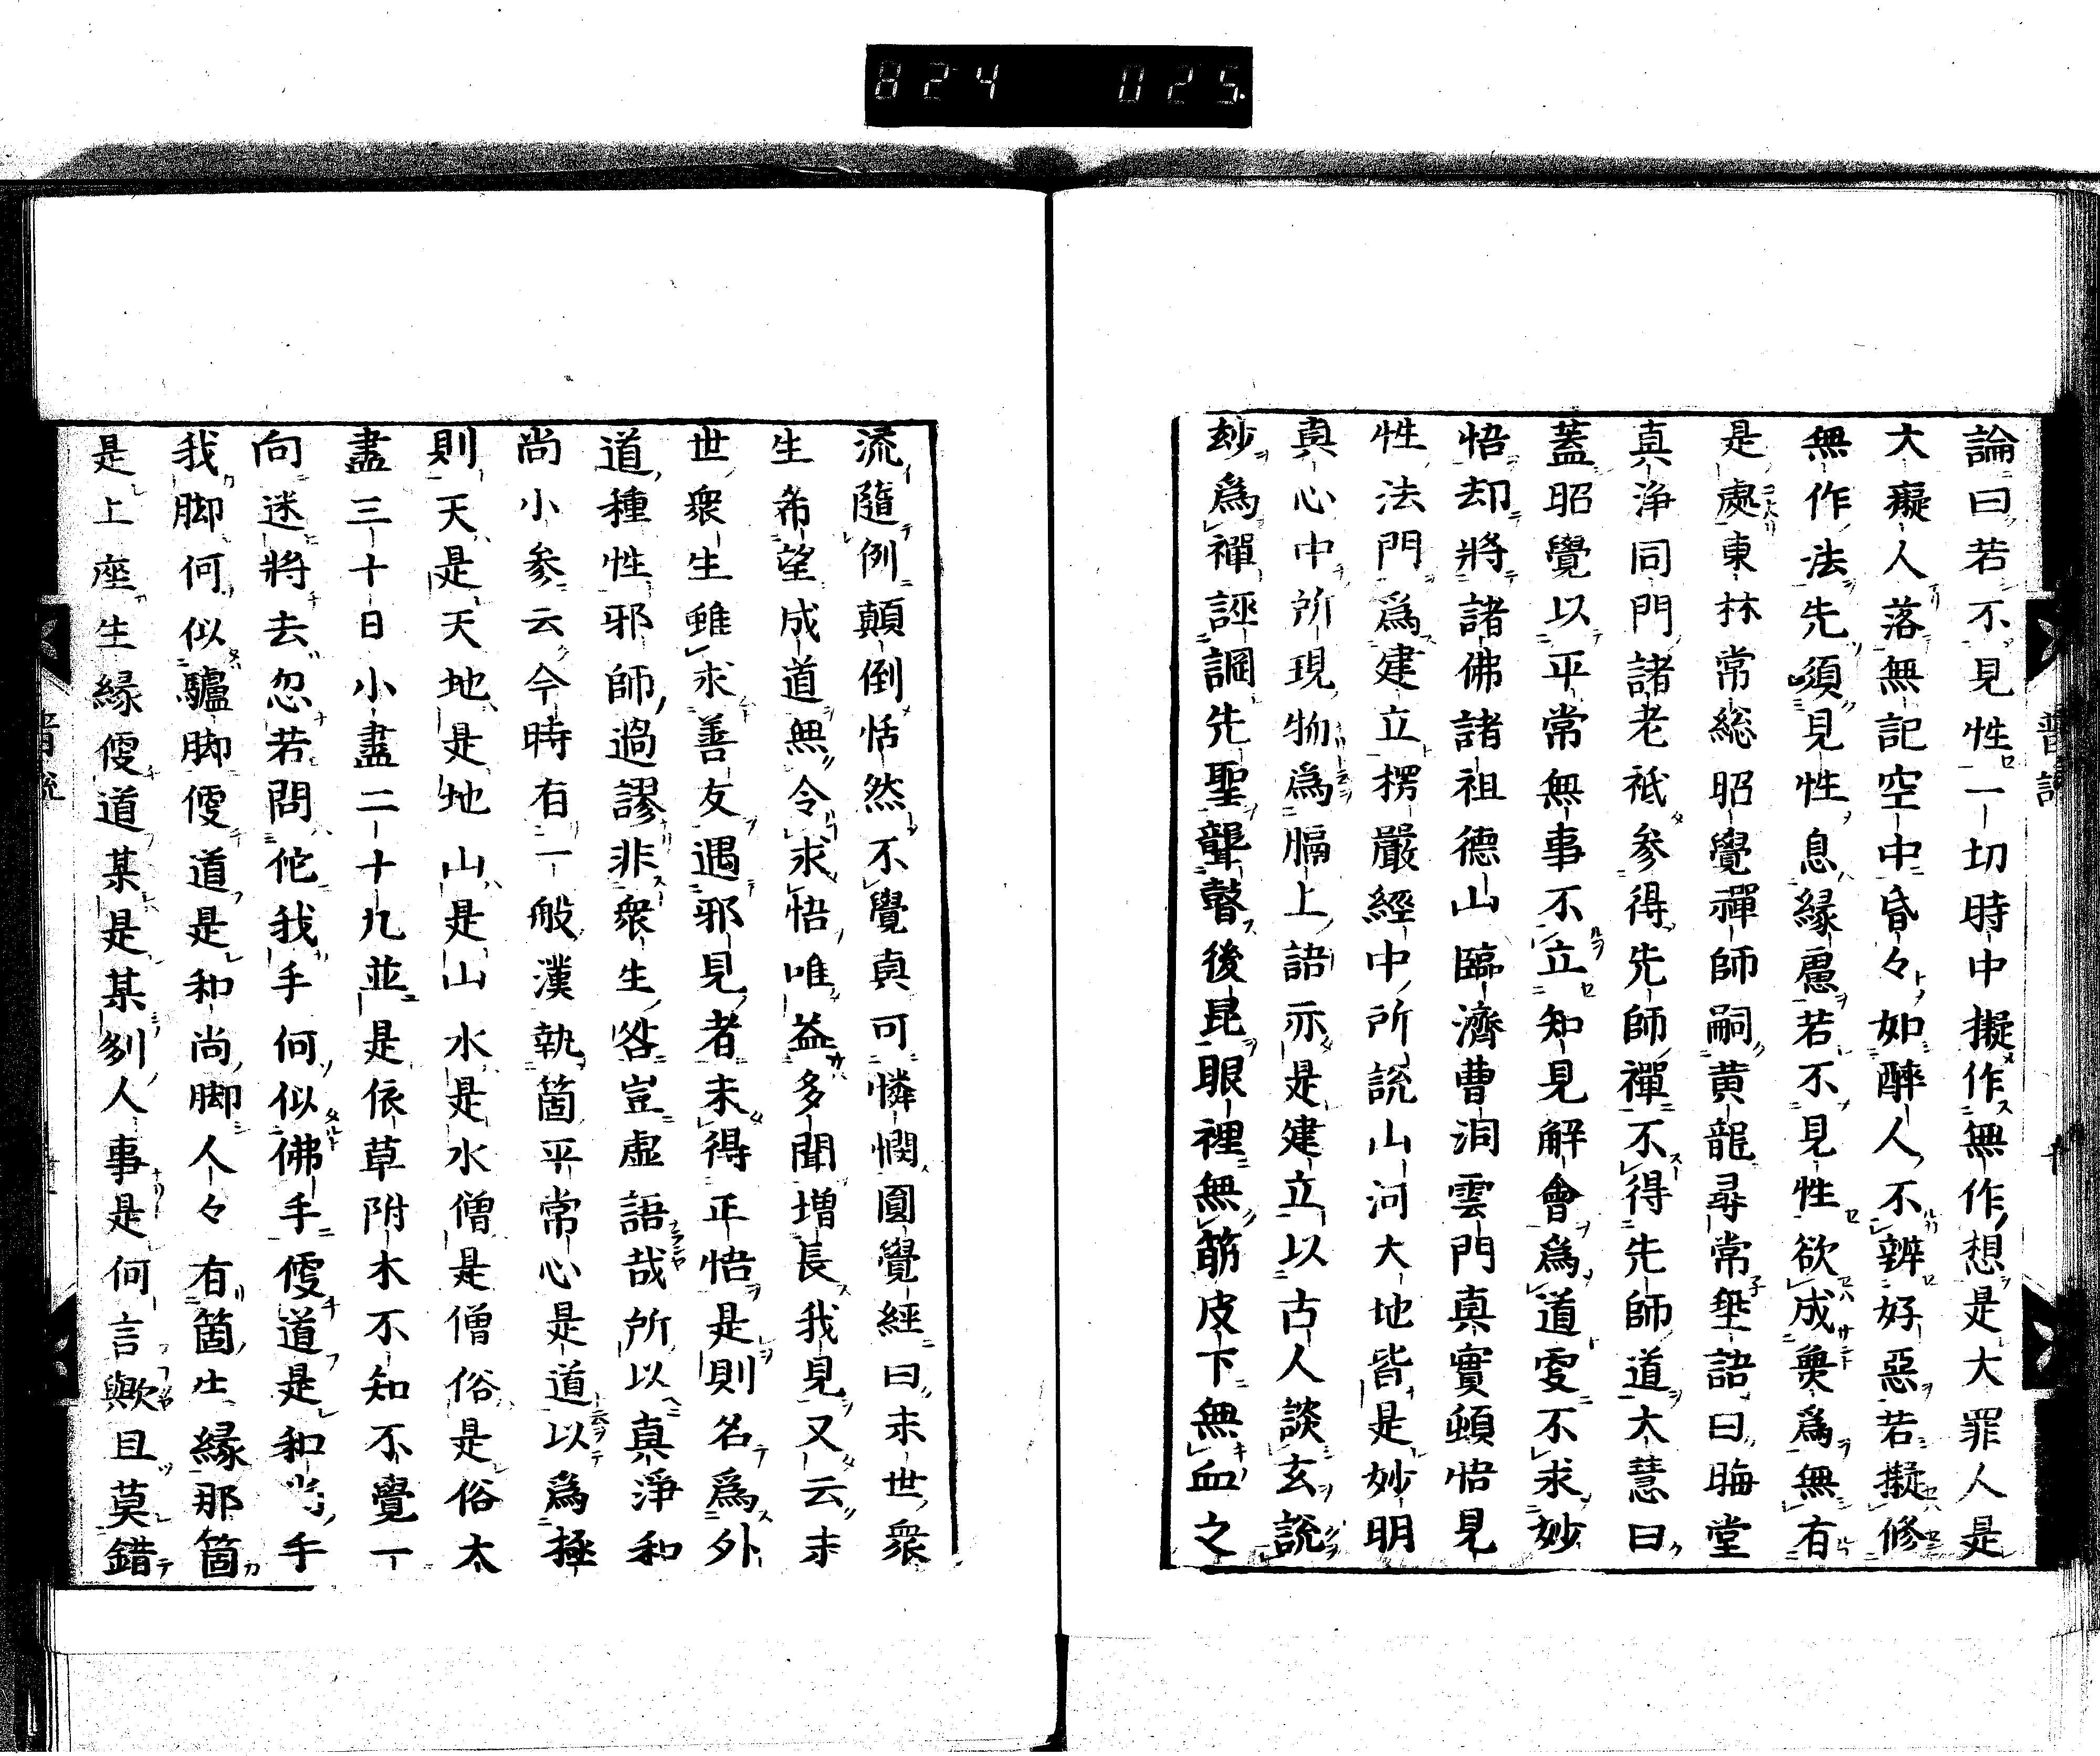 824 025
論曰若不見性一切時中擬作無作想是大罪人是
大癡人落無記空中昏々如醉人不辨好惡若擬修
無作法先須見性息緣慮若不見性欲成奧爲無有
是處東林常総昭覺禪師嗣黄龍尋常垩語曰晦堂
真浄同門諸老祇参得先師禪不得先師道大慧曰
蓋昭覺以平常無事不立知見解會爲道更不求妙
悟却將諸佛諸祖德山臨濟曹洞雲門真實頓悟見
性法門爲建立楞嚴經中所説山河大地皆是妙明
真心中所現物爲膈上語亦是建立以古人談玄說
玅爲禪誣誷先聖聾瞽後昆眼裡無筋皮下無血之
流隨例顛倒恬然不覺真可憐憫圓覺經曰末世衆
生希望成道無令求悟唯益多聞増長我見又云末
世衆生雖求善友遇邪見者未得正悟是則名爲外
道種性邪師過謬非衆生咎豈虛語哉所以真淨和
尚小参云今時有一般漢執箇平常心是道以爲極
則天是天地是地山是山水是水僧是僧俗是俗大
盡三十日小盡二十九並是依草附木不知不覺一
向迷將去忽若問佗我手何似佛手便道是和尚手
我脚何似驢脚便道是和尚脚人々有箇生縁那箇
是上座生緣便道某是某刕人事是何言歟且莫錯
普説